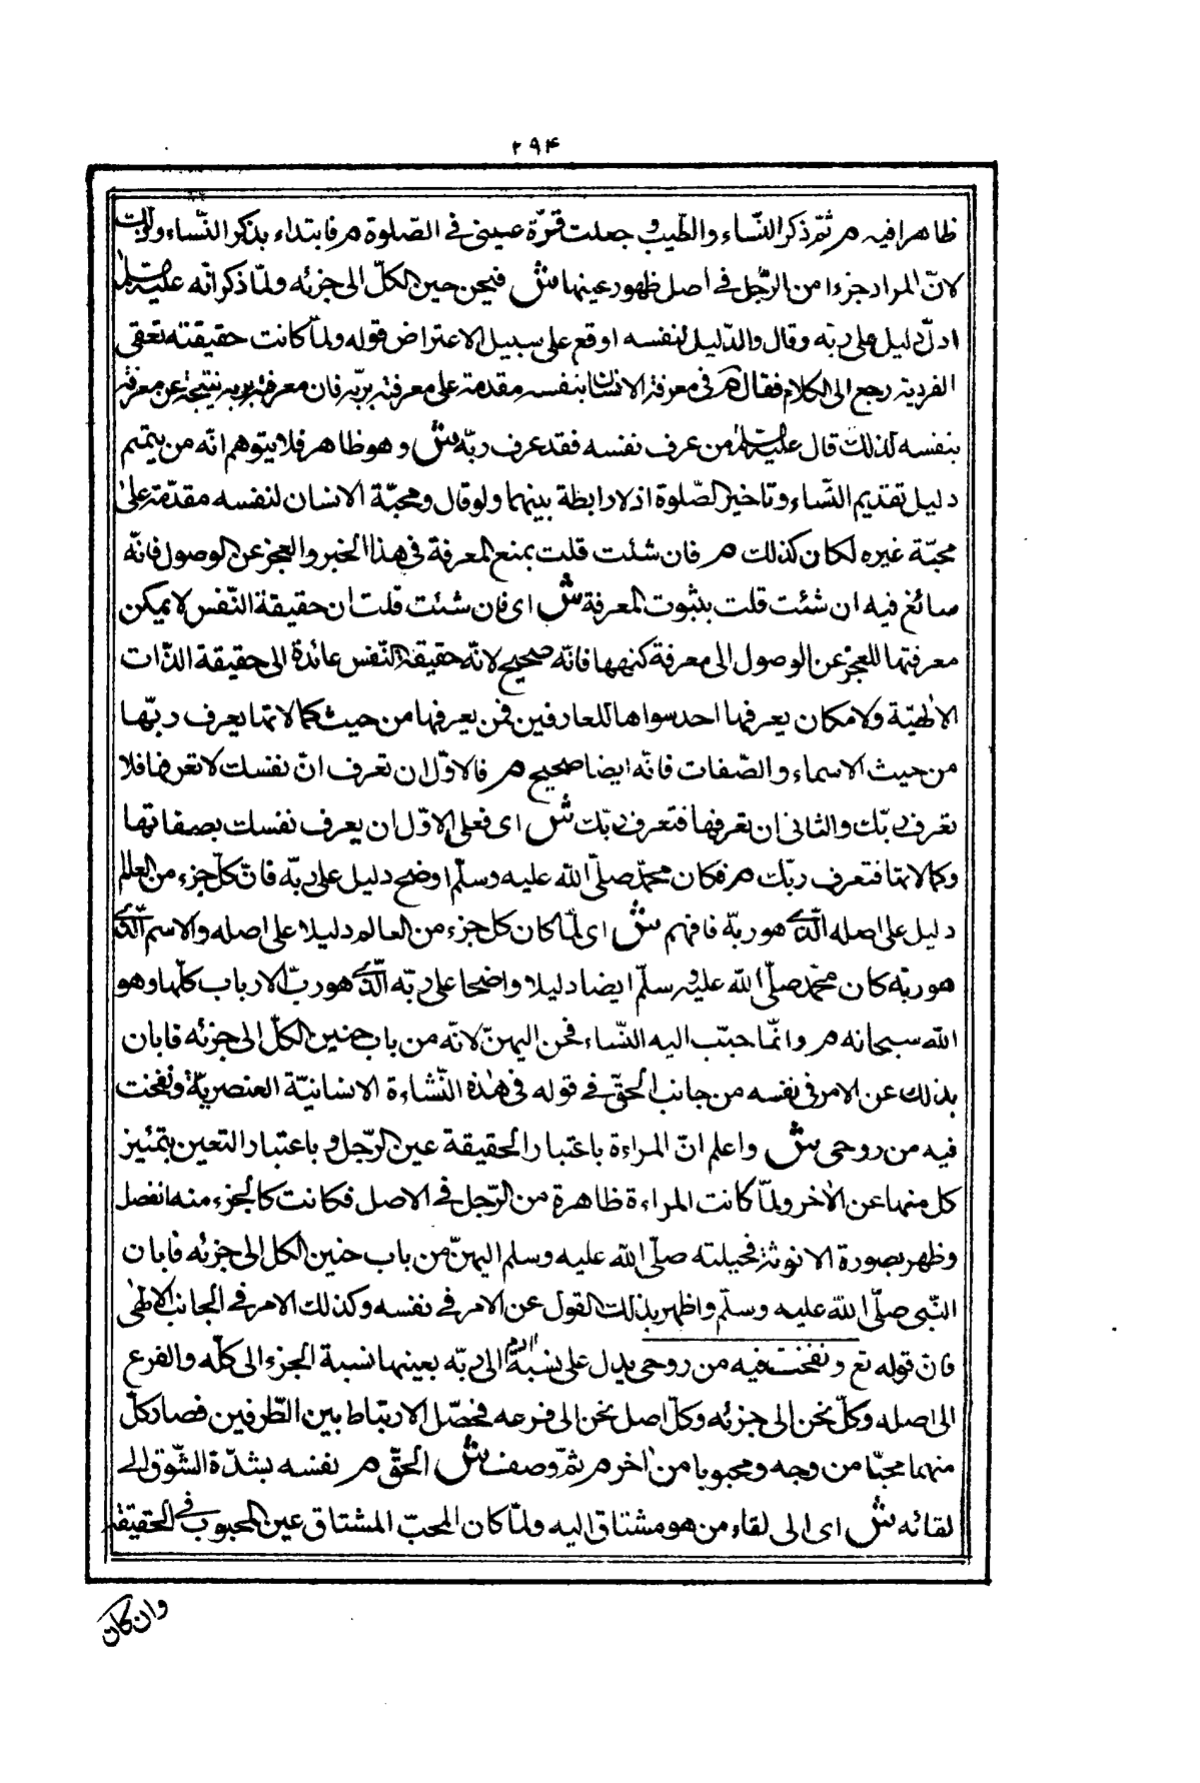 ۲۹۴
ظاهرا فيه م ثمّ ذكر النّساء والطّيب و جعلت قرّة عينى فى الصّلوة م فابتداء بذكر النّساء و
لانّ المراد جزءا من الرّجل فى اصل ظهور عينها ش فيحن حين الكلّ الى جزئه ولمّا ذكر انّه عليه السلم
ادلّ دليل على ربّه وقال والدّليل لنفسه اوقع على سبيل الاعتراض قوله ولمّا كانت حقيقته تعقى
الفردية رجع الى الكلام فقال م فى معرفة الانسان بنفسه مقدمة على معرفته بربّه فان معرفته بربه نتيجة عن معرفته
بنفسه لذلك قال عليه السلم من عرف نفسه فقد عرف ربّه ش و هو ظاهر فلا يتوهم انّه من يتمم
دليل تقديم النّساء و تاخير الصّلوة اذ لا رابطة بينهما ولو قال و محبّة الانسان لنفسه مقدّمة على
محبّة غيره لكان كذلك م فان شئت قلت بمنع المعرفة فى هذا الخبر والعجز عن الوصول فانّه
سائغ فيه ان شئت قلت بثبوت المعرفة ش اى فان شئت قلت ان حقيقة النّفس لا يمكن
معرفتها للعجز عن الوصول الى معرفة كنهها فانّه صحيح لانّه حقيقة النّفس عائدة الى حقيقة الذّات
الالهيّة ولا مكان يعرفها احد سواها للعارفين فمن يعرفها من حيث كمالاتها يعرف ربّها
من حيث الاسماء والصّفات فانّه ايضا صحيح م فالاوّل ان تعرف انّ نفسك لا تعرفها فلا
تعرف ربّك والثانى ان تعرفها فتعرف ربّك ش اى فعلى الاوّل ان يعرف نفسك بصفاتها
وكمالاتها فتعرف ربّك م فكان محمّد صلّى الله عليه وسلّم اوضح دليل على ربّه فانّ كلّ جزء من العالم
دليل على اصله الّذى هو ربّه فافهم ش اى لمّا كان كل جزء من العالم دليلا على اصله والاسم الّذى
هو ربّه كان محمّد صلّى الله عليه وسلّم ايضا دليلا واضحا على ربّه الّذى هو ربّ الارباب كلّها وهو
الله سبحانه م وانّما حبّب اليه النّساء فحن اليهنّ لانّه من باب حنين الكلّ الى جزئه فابان
بذلك عن الامر فى نفسه من جانب الحقّ فى قوله فى هذه النّشاءة الانسانيّة العنصريّة و نفخت
فيه من روحى ش واعلم انّ المراءة باعتبار الحقيقة عين الرّجل و باعتبار التعين يتميّز
كل منهما عن الاخر ولمّا كانت المراءة ظاهرة من الرّجل فى الاصل فكانت كالجزء منه انفصل
وظهر بصورة الانوثة فحيلته صلّى الله عليه وسلم اليهنّ من باب حنين الكل الى جزئه فابان
النّبى صلّى الله عليه وسلّم واظهر بذلك القول عن الامر فى نفسه وكذلك الامر فى الجانب الالهى
فانّ قوله تع ونفخت فيه من روحى يدل على نسبة الى ربّه بعينها نسبة الجزء الى كلّه والفرع
الى اصله وكلّ يحن الى جزئه وكلّ اصل يحن الى فرعه فحصّل الارتباط بين الطّرفين فصار كلّ
منهما محبّا من وجه ومحبوبا من اخر م ثمّ وصف ش الحقّ م نفسه بشدّة الشّوق الى
لقائه ش اى الى لقاء من هو مشتاق اليه ولمّا كان المحبّ المشتاق عين المحبوب فى الحقيقة
وان كان